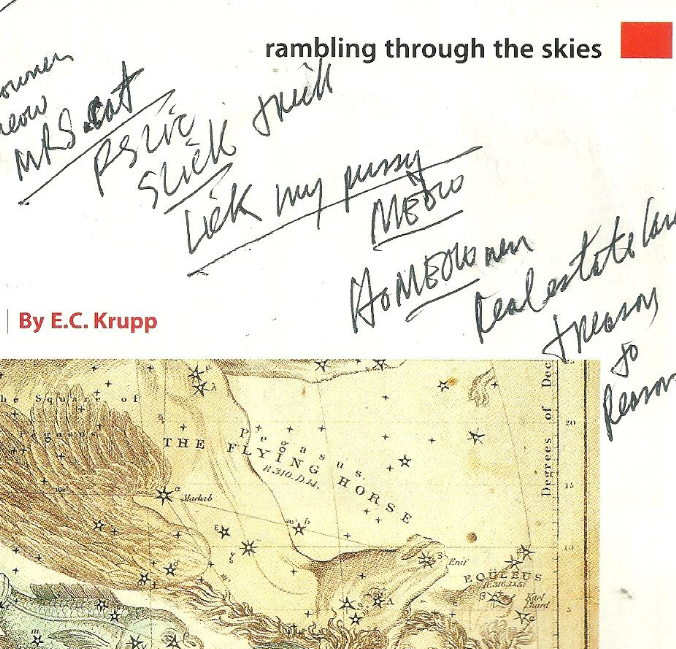 rambling through the skies
owner
meow
MRS cat
slick trick
Lick my pussy
MEOW
HoMEOwner
Real estate law
treason
to
Reason
By E.C. Krupp
The Square of
Pegasus
THE FLYING HORSE
H.310. D.14.
α Markab
Enif
EQUULEUS
Degrees of Dec
20
15
10
5